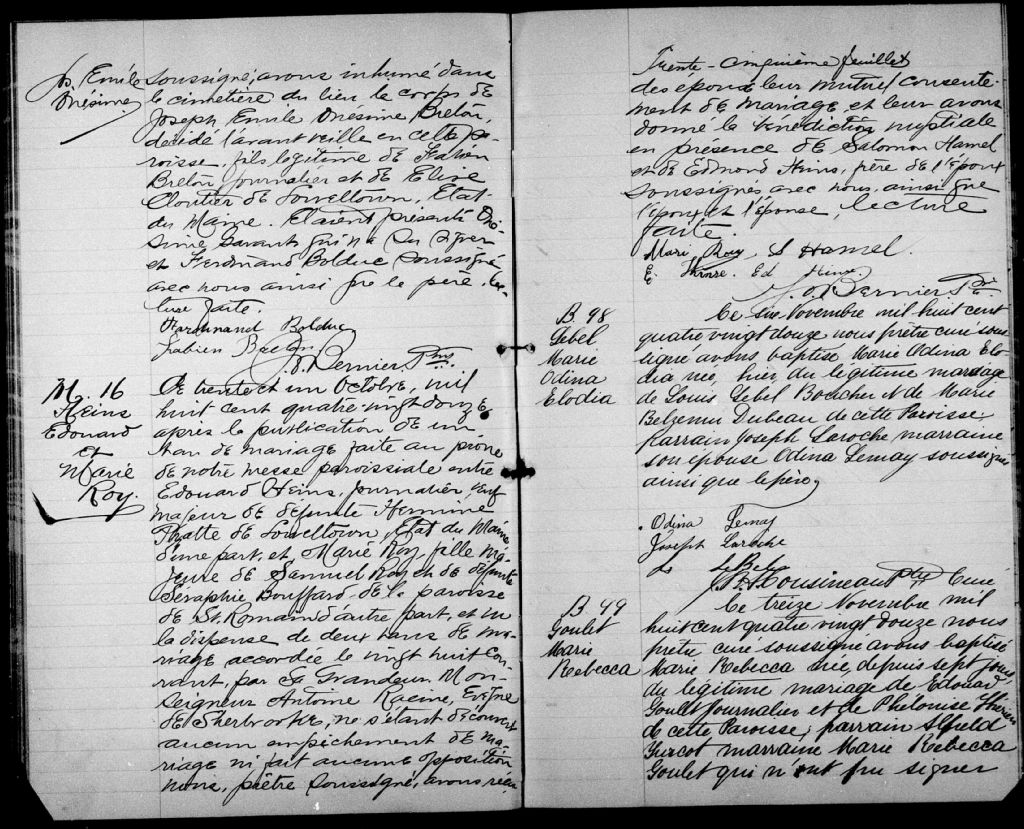 Js. Emile
Onésime
soussigné, avons inhumé dans
le cimetière du lieu le corps de
Joseph Emile Onésime Breton,
décédé l'avant veille en cette pa-
roisse, fils légitime de Fabien
Breton journalier et de Elise
Cloutier de Lowelltown, Etat
du Maine. Etaient présents Oné-
sime savant qui n'a su signer
et Ferdinand Bolduc soussigné
avec nous ainsi que le père. Lec-
ture faite.
Ferdinand Bolduc
Fabien Breton
J. O. Bernier, Ptre
M. 16
Heins
Edouard
et
Marie
Roy.
Ce trente et un Octobre, mil
huit cent quatre-vingt douze,
après la publication de un
ban de mariage faite au prône
de notre messe paroissiale entre
Edouard Heins, journalier, veuf
majeur de défunte Hermine
Thatte de Lowelltown, Etat du Maine
d'une part, et Marie Roy, fille ma-
jeure de Samuel Roy et de défunte
Séraphie Bouffard de la paroisse
de St. Romain d'autre part, et vu
la dispense de deux bans de ma-
riage accordée le vingt huit cou-
rant, par Sa Grandeur Mon-
seigneur Antoine Racine, Evêque
de Sherbrooke, ne s'étant découvert
aucun empêchement de ma-
riage ni fait aucune opposition
nous, prêtre soussigné, avons reçu
Trente-cinquième feuillet
des époux leur mutuel consente-
ment de mariage et leur avons
donné la bénédiction nuptiale
en présence de Salomon Hamel
et de Edmond Heins, père de l'époux
soussignés avec nous, ainsi que
l'époux et l'épouse, lecture
faite.
Mari Roy, S Hamel.
E. Ed
J. O. Bernier, Ptre
B 98
Lebel
Marie
Odina
Elodia
Ce six Novembre mil huit cent
quatre vingt douze nous prêtre curé sous-
signé avons baptisé Marie Odina Elo-
dia née, hier, du légitime mariage
de Louis Lebel Boucher et de Marie
Belzemir Dubeau de cette Paroisse;
parrain Joseph Laroche marraine
son épouse Odina Lemay soussignés
ainsi que le père,
Odina Lemay
Joseph Laroche
Ls LeBel
J. H. Cousineau Ptre Curé
B 99
Goulet
Marie
Rebecca
Ce treize Novembre mil
huit cent quatre vingt douze nous
prêtre curé soussigné avons baptisé
Marie Rebecca née, depuis sept jours,
du légitime mariage de Edouard
Goulet journalier et de Phélonise Therien
de cette Paroisse; parrain Alfred
Turcot marraine Marie Rebecca
Goulet qui n'ont pu signer